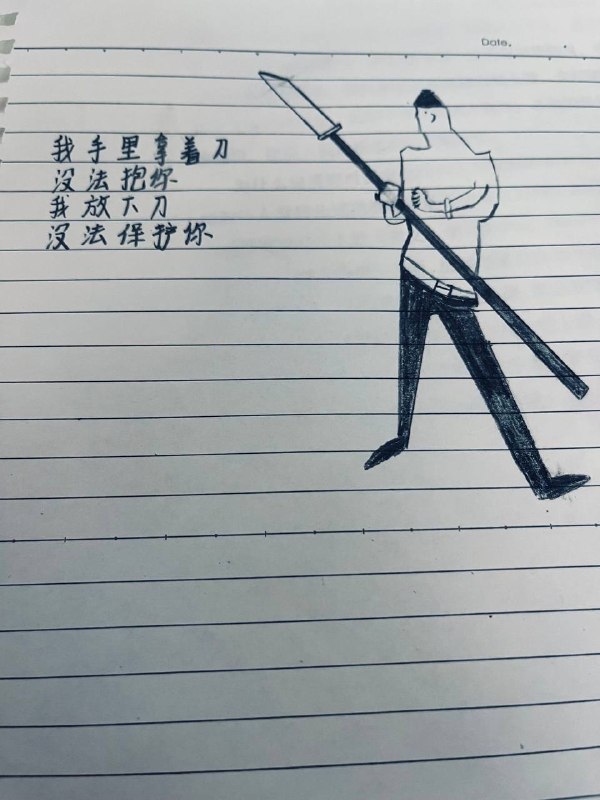 Date.
我手里拿着刀
没法抱你
我放下刀
没法保护你